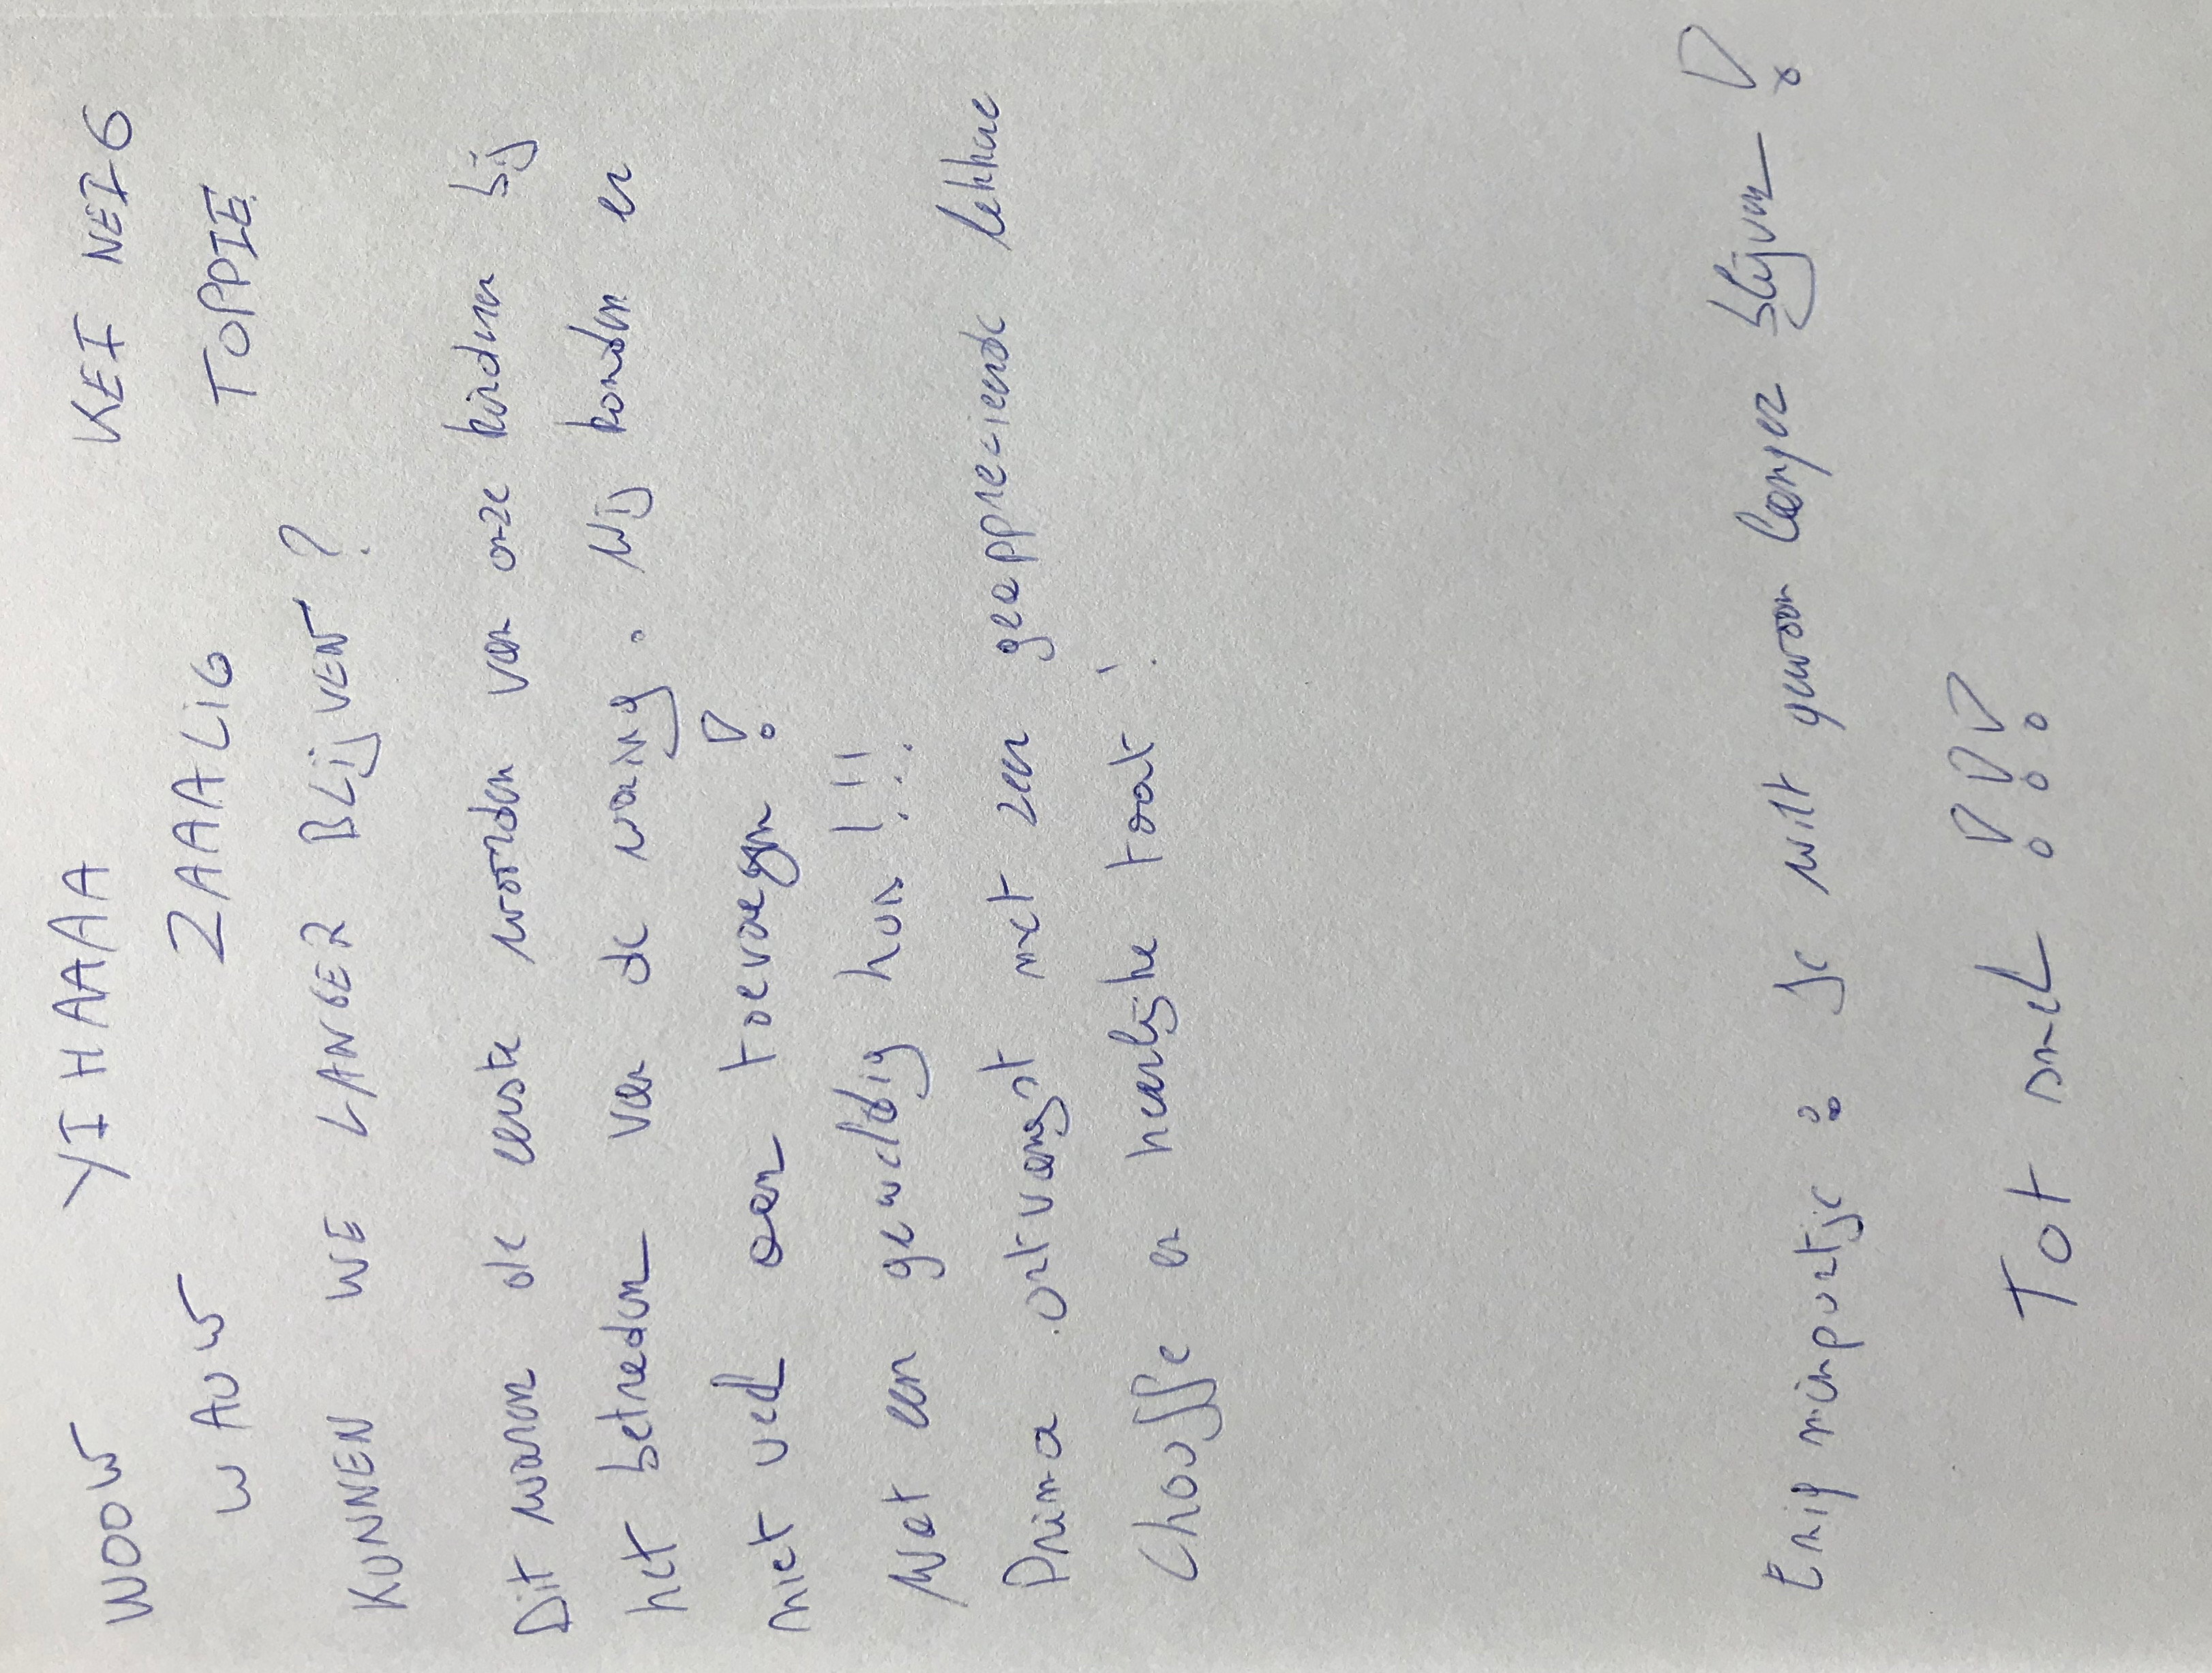 WOOW YIHAAAA KEI NEIG
WAUW ZAAALIG TOPPIE
KUNNEN WE LANGER BLIJVEN?
Dit waren de eerste woorden van onze kinderen bij
het betreden van de woning. Wij konden er
niet veel aan toevoegen!
Wat een geweldig huis!!!
Prima ontvangst met zeer geapprecieerde lekkere
Chouffe en heerlijke taart!
Enig minpuntje: Je wilt gewoon langer blijven!
Tot snel!!!